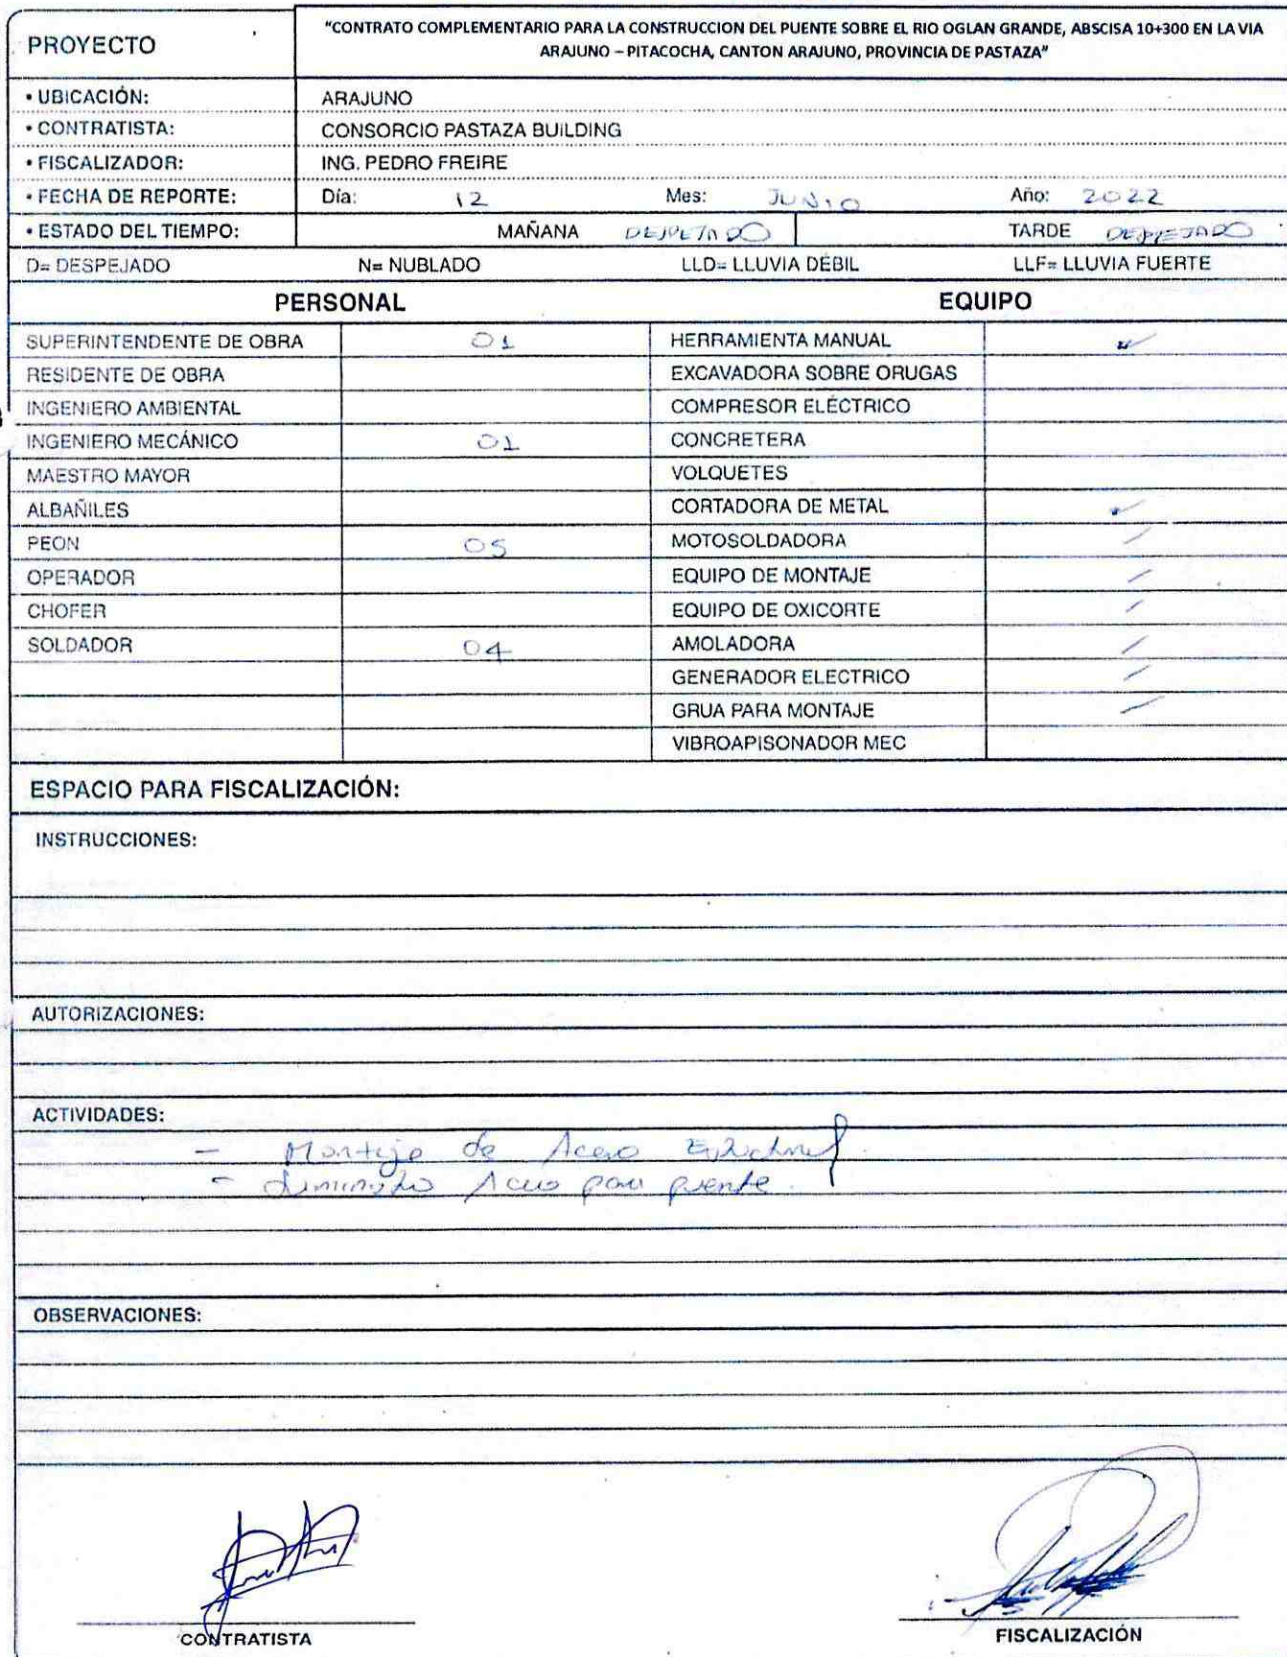 PROYECTO
"CONTRATO COMPLEMENTARIO PARA LA CONSTRUCCION DEL PUENTE SOBRE EL RIO OGLAN GRANDE, ABSCISA 10+300 EN LA VIA
ARAJUNO – PITACOCHA, CANTON ARAJUNO, PROVINCIA DE PASTAZA"
• UBICACIÓN: ARAJUNO
• CONTRATISTA: CONSORCIO PASTAZA BUILDING
• FISCALIZADOR: ING. PEDRO FREIRE
• FECHA DE REPORTE: Día: 12 Mes: JUNIO Año: 2022
• ESTADO DEL TIEMPO: MAÑANA DESPEJADO TARDE DESPEJADO
D= DESPEJADO N= NUBLADO LLD= LLUVIA DÉBIL LLF= LLUVIA FUERTE
PERSONAL EQUIPO
SUPERINTENDENTE DE OBRA 01 HERRAMIENTA MANUAL ✓
RESIDENTE DE OBRA EXCAVADORA SOBRE ORUGAS
INGENIERO AMBIENTAL COMPRESOR ELÉCTRICO
INGENIERO MECÁNICO 01 CONCRETERA
MAESTRO MAYOR VOLQUETES
ALBAÑILES CORTADORA DE METAL ✓
PEON 05 MOTOSOLDADORA /
OPERADOR EQUIPO DE MONTAJE /
CHOFER EQUIPO DE OXICORTE /
SOLDADOR 04 AMOLADORA /
GENERADOR ELECTRICO /
GRUA PARA MONTAJE /
VIBROAPISONADOR MEC
ESPACIO PARA FISCALIZACIÓN:
INSTRUCCIONES:
AUTORIZACIONES:
ACTIVIDADES:
- Montaje de Acero Estructural
- Suministro Acero para puente.
OBSERVACIONES:
CONTRATISTA FISCALIZACIÓN